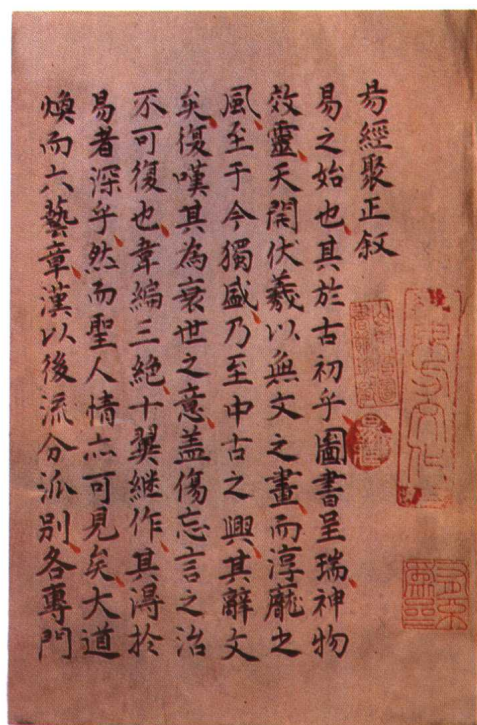 易經聚正叙
易之始也其於古初乎圖書呈瑞神物
效靈天開伏羲以無文之畫而淳龐之
風至于今獨盛乃至中古之興其辭文
矣復嘆其為衰世之意盖傷忘言之治
不可復也韋編三絶十翼継作其淂於
易者深乎然而聖人情亦可見矣大道
煥而六藝章漢以後流分派别各專門